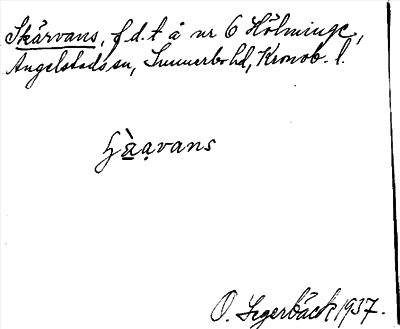 Skärvans, f.d.t å nr 6 Hölminge,
Angelstads sn, Sunnerbo hd, Kronob. l.
ʃæ̀ạvans
O. Segerbäck 1937.